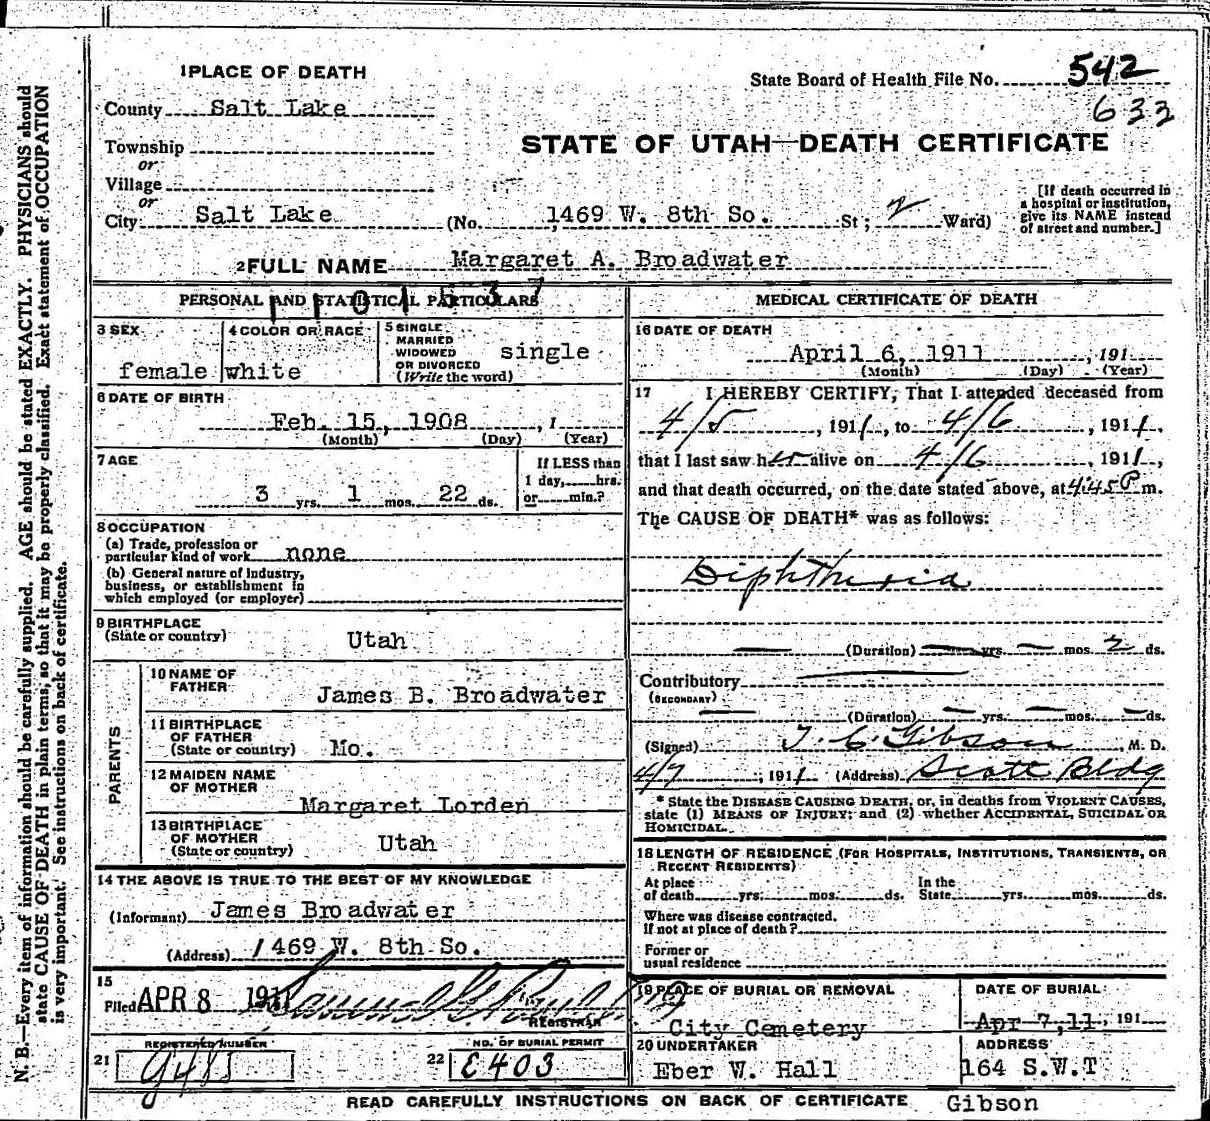 1 PLACE OF DEATH
State Board of Health File No. 542
County Salt Lake
633
Township
or
STATE OF UTAH—DEATH CERTIFICATE
Village
or
City Salt Lake (No. 1469 W. 8th So. St; 2 Ward)
[If death occurred in
a hospital or institution,
give its NAME instead
of street and number.]
2 FULL NAME Margaret A. Broadwater
PERSONAL AND STATISTICAL PARTICULARS
3 SEX
female
4 COLOR OR RACE
white
5 SINGLE
MARRIED
WIDOWED
OR DIVORCED
(Write the word)
single
6 DATE OF BIRTH
Feb. 15, 1908, 1
(Month) (Day) (Year)
7 AGE
3 yrs. 1 mos. 22 ds.
If LESS than
1 day, hrs.
or min.?
8 OCCUPATION
(a) Trade, profession or
particular kind of work none
(b) General nature of industry,
business, or establishment in
which employed (or employer)
9 BIRTHPLACE
(State or country) Utah
PARENTS
10 NAME OF
FATHER James B. Broadwater
11 BIRTHPLACE
OF FATHER
(State or country) Mo.
12 MAIDEN NAME
OF MOTHER
Margaret Lorden
13 BIRTHPLACE
OF MOTHER
(State or country) Utah
14 THE ABOVE IS TRUE TO THE BEST OF MY KNOWLEDGE
(Informant) James Broadwater
(Address) 1469 W. 8th So.
15
Filed APR 8 1911
REGISTRAR
REGISTERED NUMBER
21 G485
NO. OF BURIAL PERMIT
22 E403
MEDICAL CERTIFICATE OF DEATH
16 DATE OF DEATH
April 6, 1911, 191
(Month) (Day) (Year)
17 I HEREBY CERTIFY, That I attended deceased from
4/5, 1911, to 4/6, 1911,
that I last saw her alive on 4/6, 1911,
and that death occurred, on the date stated above, at 4:45 P m.
The CAUSE OF DEATH* was as follows:
Diphtheria
(Duration) yrs. mos. 2 ds.
Contributory
(SECONDARY)
(Duration) yrs. mos. ds.
(Signed) T. C. Gibson, M. D.
4/7, 1911 (Address) Scott Bldg
* State the DISEASE CAUSING DEATH, or, in deaths from VIOLENT CAUSES,
state (1) MEANS OF INJURY; and (2) whether ACCIDENTAL, SUICIDAL OR
HOMICIDAL.
18 LENGTH OF RESIDENCE (FOR HOSPITALS, INSTITUTIONS, TRANSIENTS, OR
RECENT RESIDENTS)
At place
of death yrs. mos. ds.
In the
State yrs. mos. ds.
Where was disease contracted.
If not at place of death?
Former or
usual residence
19 PLACE OF BURIAL OR REMOVAL
City Cemetery
DATE OF BURIAL
Apr 7, 11, 191
20 UNDERTAKER
Eber W. Hall
ADDRESS
164 S.W.T
READ CAREFULLY INSTRUCTIONS ON BACK OF CERTIFICATE Gibson
N. B.—Every item of information should be carefully supplied. AGE should be stated EXACTLY. PHYSICIANS should
state CAUSE OF DEATH in plain terms, so that it may be properly classified. Exact statement of OCCUPATION
is very important. See instructions on back of certificate.